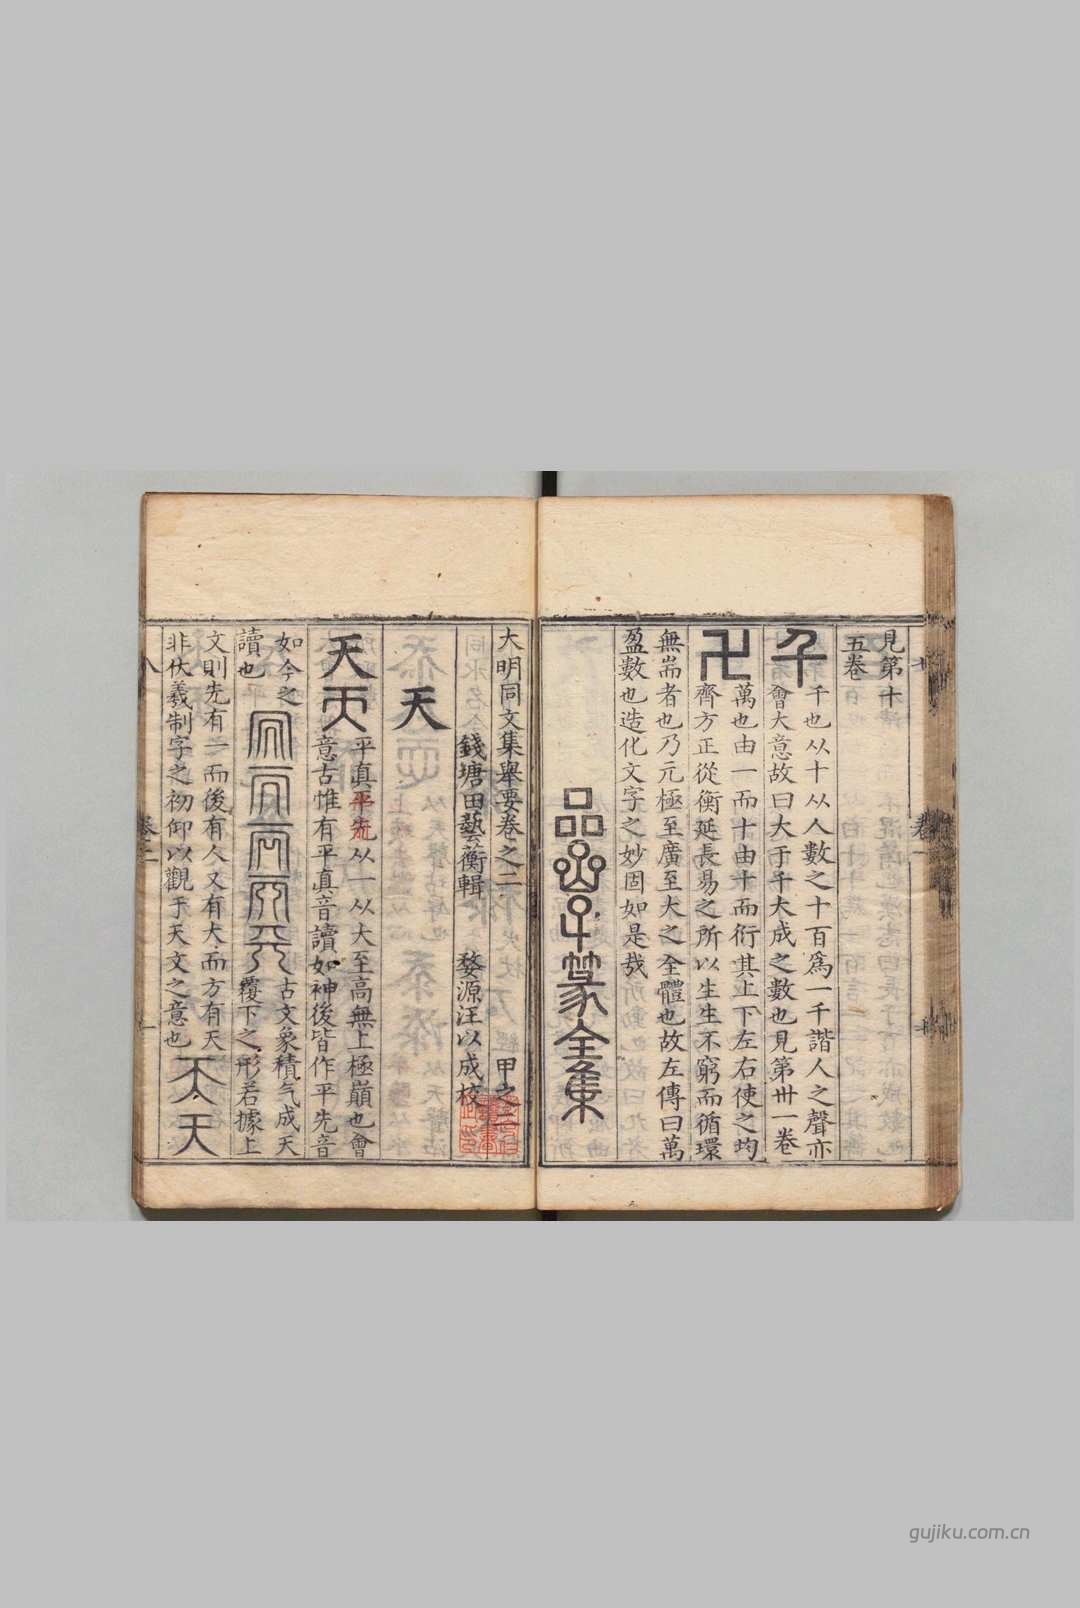 見第十
五卷
千也从十从人數之十百爲一千諧人之聲亦
會大意故曰大于千大成之數也見第卅一卷
卍
萬也由一而十由十而衍其上下左右使之均
齊方正從衡延長易之所以生生不窮而循環
無耑者也乃元極至廣至大之全體也故左傳曰萬
盈數也造化文字之妙固如是哉
品嵓子篆全集
大明同文集舉要卷之二
甲之二
錢塘田藝蘅輯 婺源汪以成校
天
天
平真平先从一从大至高無上極巔也會
意古惟有平真音讀如神後皆作平先音
如今之
讀也
古文象積气成天
覆下之形若據上
文則先有一而後有人又有大而方有天
非伏羲制字之初仰以觀于天文之意也
卷一
卷二
gujiku.com.cn